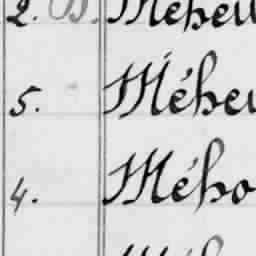 2. B. Méheu
5. Méheu
4. Mého